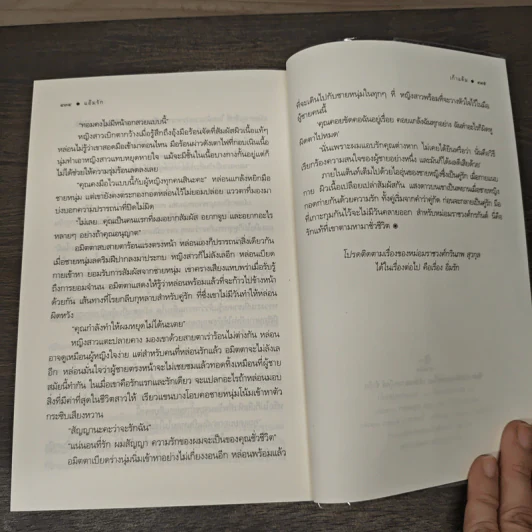 ๓๓๔ ● แอ้มรัก
"หมอคงไม่มีหน้าอกสวยแบบนี้"
หญิงสาวเบิกตากว้างเมื่อรู้สึกถึงอุ้งมือร้อนจัดที่สัมผัสผิวเนื้อแท้ๆ
หล่อนไม่รู้ว่าเขาสอดมือเข้ามาตอนไหน มือร้อนผ่าวดังเตาไฟที่กอบเนินเนื้อ
นุ่มทำเอาหญิงสาวแทบหยุดหายใจ แม้จะมีชั้นในเนื้อบางกางกั้นอยู่แต่ก็
ไม่ได้ช่วยให้ความรู้สึกร้อนลดลงเลย
"คุณคงมือไวแบบนี้กับผู้หญิงทุกคนสินะคะ" หล่อนแกล้งหยิกมือ
ชายหนุ่ม แต่เขายังคงตระกองกอดหล่อนไว้ไม่ยอมปล่อย แววตาที่มองมา
บ่งบอกความปรารถนาที่ปิดไม่มิด
"ไม่เลย...คุณเป็นคนแรกที่ผมอยากสัมผัส อยากจูบ และอยากอะไร
หลายๆ อย่างถ้าคุณอนุญาต"
อมิตตาสบสายตาร้อนแรงตรงหน้า หล่อนเองก็ปรารถนาสิ่งเดียวกัน
เมื่อชายหนุ่มลดริมฝีปากลงมาประกบ หญิงสาวก็ไม่ลังเลเลย หล่อนเบียด
กายเข้าหา ยอมรับการสัมผัสจากชายหนุ่ม เขาครางเสียงแหบพร่าเมื่อรับรู้
ถึงการยอมจำนน อมิตตาแสดงให้รู้ว่าหล่อนพร้อมแล้วที่จะก้าวไปข้างหน้า
ด้วยกัน เส้นทางที่โรยกลีบกุหลาบสำหรับคู่รัก ที่ซึ่งเขาไม่มีวันทำให้หล่อน
ผิดหวัง
"คุณกำลังทำให้ผมหยุดไม่ได้นะเตย"
หญิงสาวแตะปลายคาง มองเขาด้วยสายตาเร่าร้อนไม่ต่างกัน หล่อน
อาจดูเหมือนผู้หญิงใจง่าย แต่สำหรับคนที่หล่อนรักแล้ว อมิตตาจะไม่ลังเล
อีก หล่อนมั่นใจว่าผู้ชายตรงหน้าจะไม่เชยชมแล้วทอดทิ้งเหมือนที่ผู้ชาย
สมัยนี้ทำกัน ในเมื่อเขาคือรักแรกและรักเดียว จะแปลกอะไรถ้าหล่อนมอบ
สิ่งที่มีค่าที่สุดในชีวิตสาวให้ เรียวแขนบางโอบคอชายหนุ่มโน้มเข้าหาตัว
กระซิบเสียงหวาน
"สัญญานะคะว่าจะรักฉัน"
"แน่นอนที่รัก ผมสัญญา ความรักของผมจะเป็นของคุณชั่วชีวิต"
อมิตตาเบียดร่างนุ่มนิ่มเข้าหาอย่างไม่เกี่ยงงอนอีก หล่อนพร้อมแล้ว
เก้าแต้ม ● ๓๓๕
ที่จะเดินไปกับชายหนุ่มในทุกๆ ที่ หญิงสาวพร้อมที่จะวางหัวใจไว้ในมือ
ผู้ชายคนนี้
"คุณตอบขัดคอฉันอยู่เรื่อย ตอบแกล้งฉันทุกอย่าง ฉันทำอะไรให้คุณ
ผิดตาไปหมด"
"นั่นเพราะผมแอบรักคุณต่างหาก ไม่เคยได้ยินหรือว่า นั่นคือวิธี
เรียกร้องความสนใจของผู้ชายอย่างหนึ่ง และมันก็ได้ผลดีเสียด้วย"
ภายในเต็นท์เต็มไปด้วยไออุ่นของชายหญิงซึ่งเป็นคู่รัก เสื้อกายแอบ
กาย ผิวเนื้อเปลือยเปล่าสัมผัสกัน แสงดาวบนเขาเป็นพยานเมื่อชายหญิง
กอดก่ายกันด้วยความรัก ทั้งคู่เริ่มจากคำว่าคู่กัด ก่อนจะกลายเป็นคู่รัก มือ
ที่เกาะกุมกันไว้จะไม่มีวันคลายออก สำหรับหม่อมราชวงศ์กรันต์ นี่คือ
รักแท้ที่เขาตามหามาชั่วชีวิต
โปรดติดตามเรื่องของหม่อมราชวงศ์กวินภพ สุรกุล
ได้ในเรื่องต่อไป คือเรื่อง อิ่มรัก